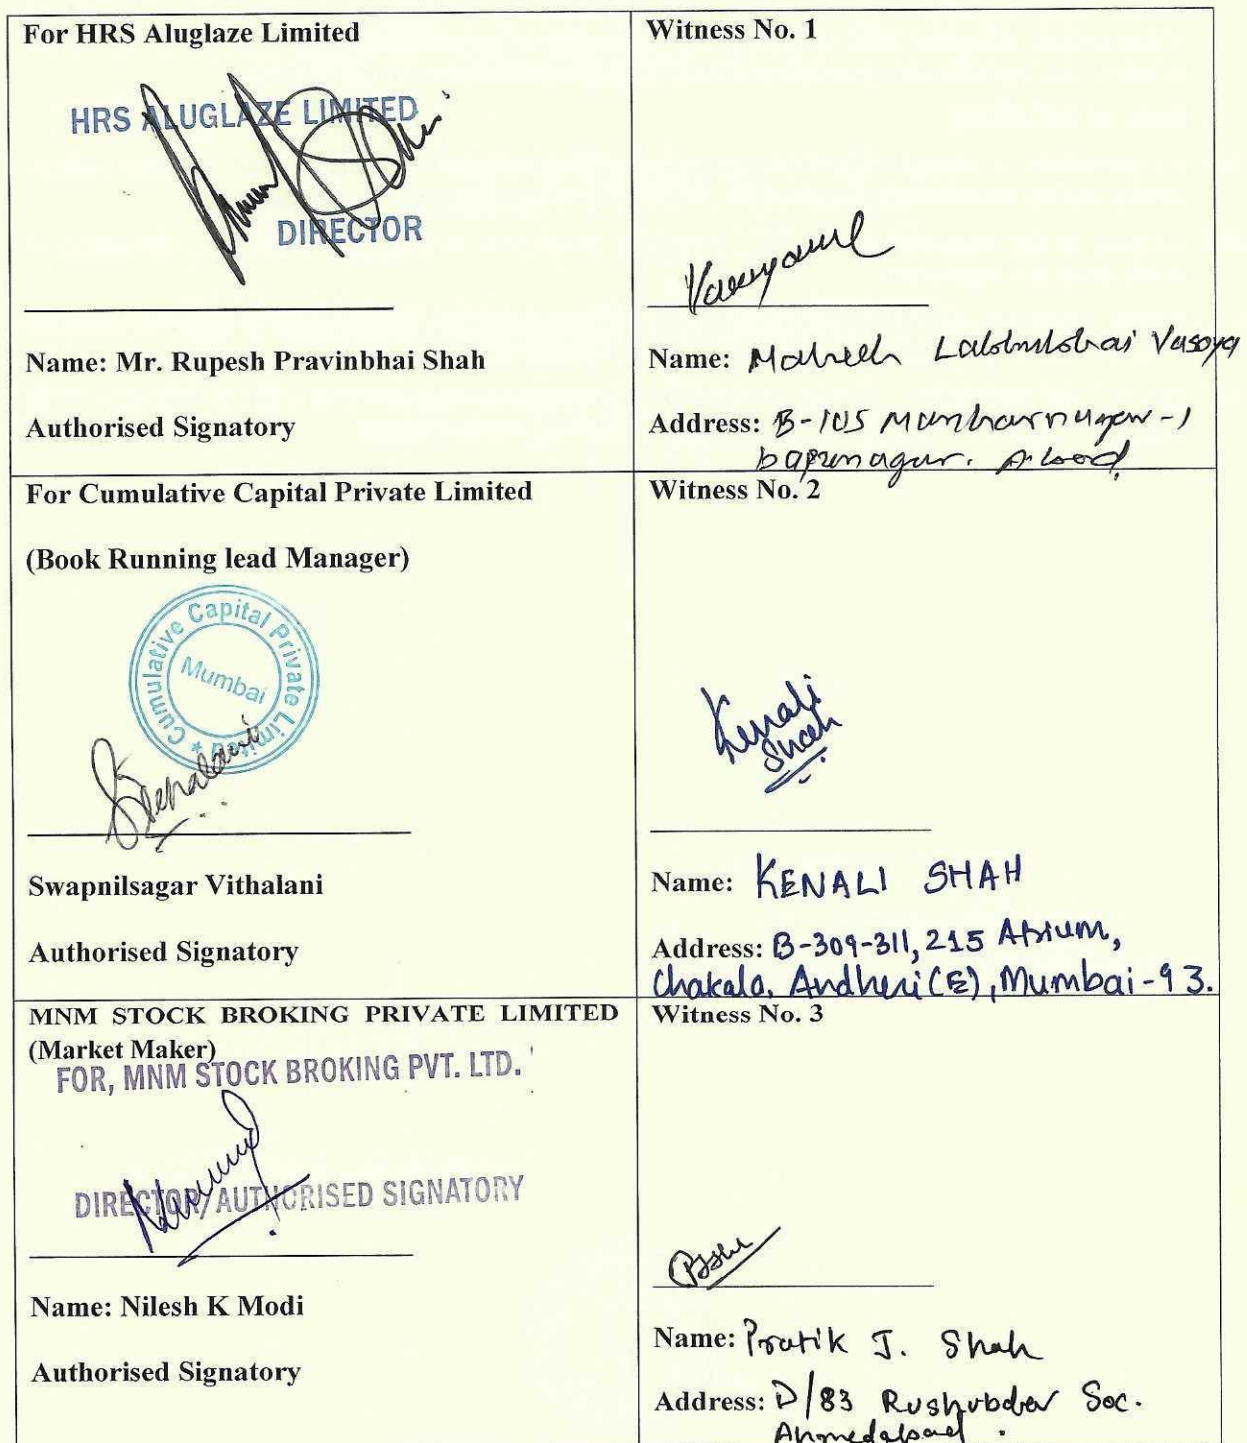 For HRS Aluglaze Limited
HRS ALUGLAZE LIMITED
DIRECTOR
Name: Mr. Rupesh Pravinbhai Shah
Authorised Signatory
Witness No. 1
Name: Vasoya
Address: B-105
For Cumulative Capital Private Limited
(Book Running lead Manager)
Cumulative Capital Private Limited ★
Mumbai
Swapnilsagar Vithalani
Authorised Signatory
Witness No. 2
Kenali
Shah
Name: KENALI SHAH
Address: B-309-311, 215 Atrium,
Chakala, Andheri (E), Mumbai-93.
MNM STOCK BROKING PRIVATE LIMITED
(Market Maker)
FOR, MNM STOCK BROKING PVT. LTD.
DIRECTOR/AUTHORISED SIGNATORY
Name: Nilesh K Modi
Authorised Signatory
Witness No. 3
Name: Pratik J. Shah
Address: D/83 Soc.
Ahmedabad.